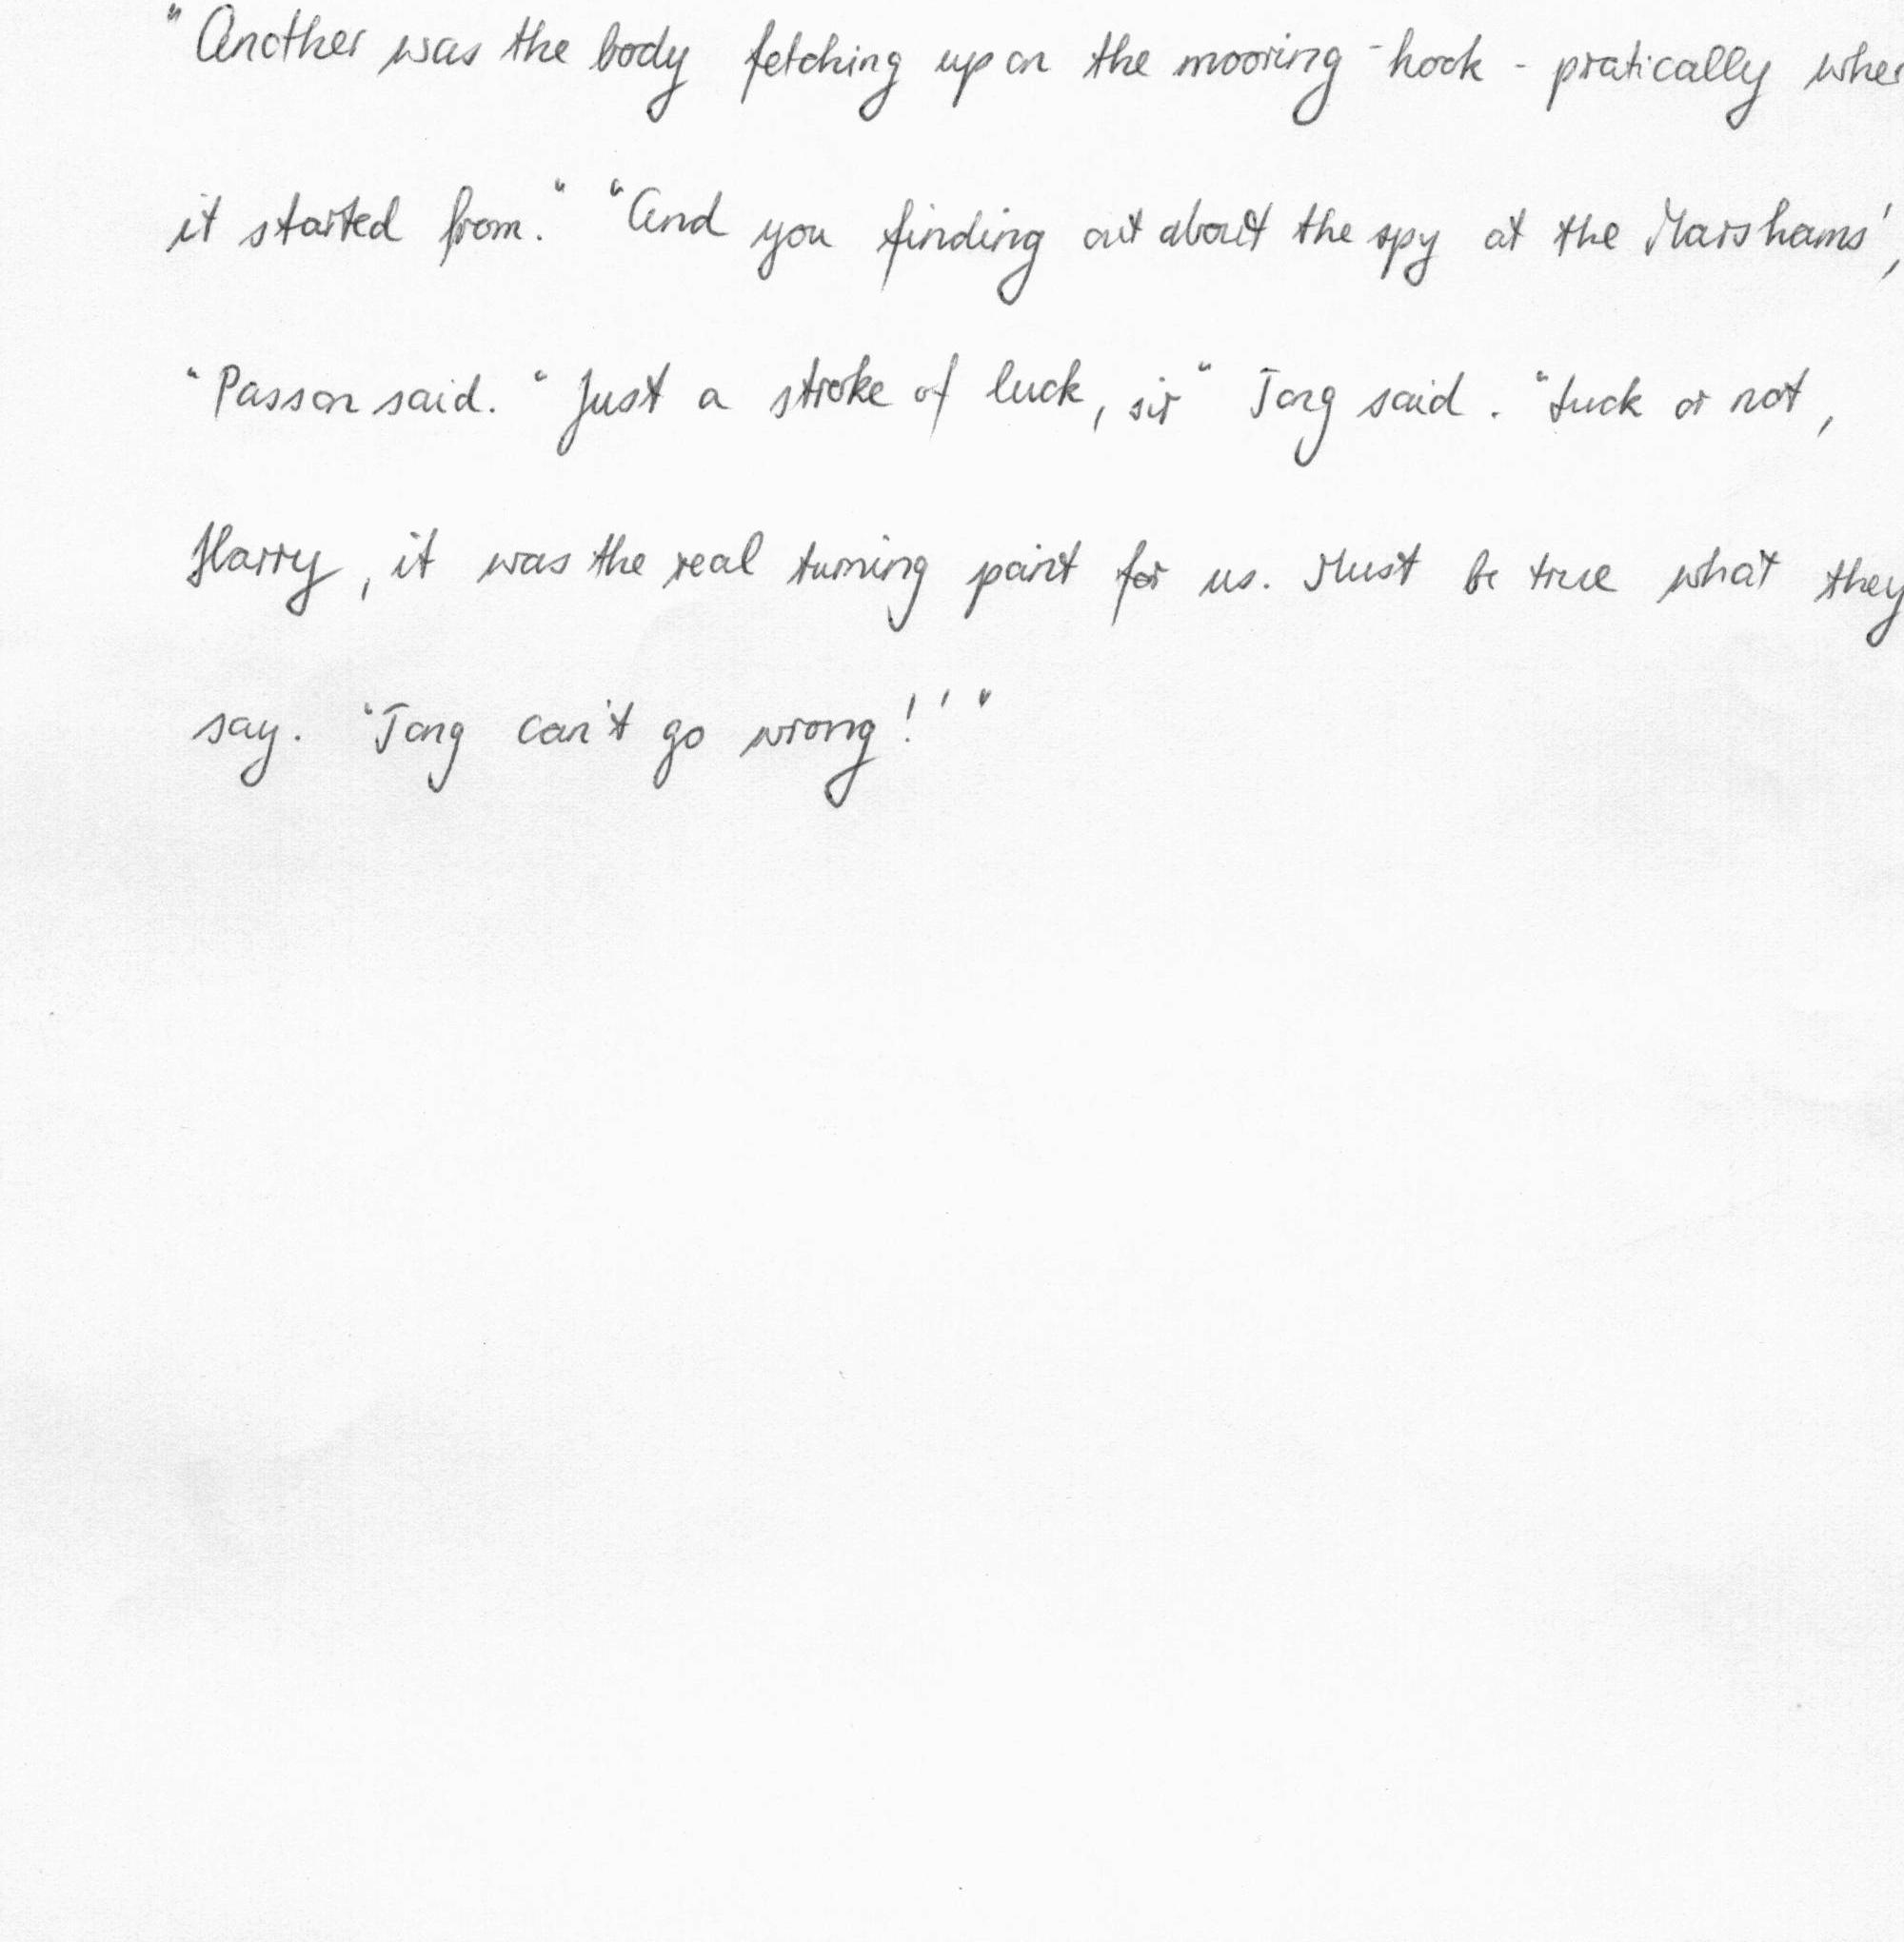 "Another was the body fetching up on the mooring-hook - pratically wher
it started from." "And you finding out about the spy at the Marshams',
"Passon said. "Just a stroke of luck, sir" Tong said. "Luck or not,
Harry, it was the real turning point for us. Must be true what they
say. 'Tong can't go wrong!'"